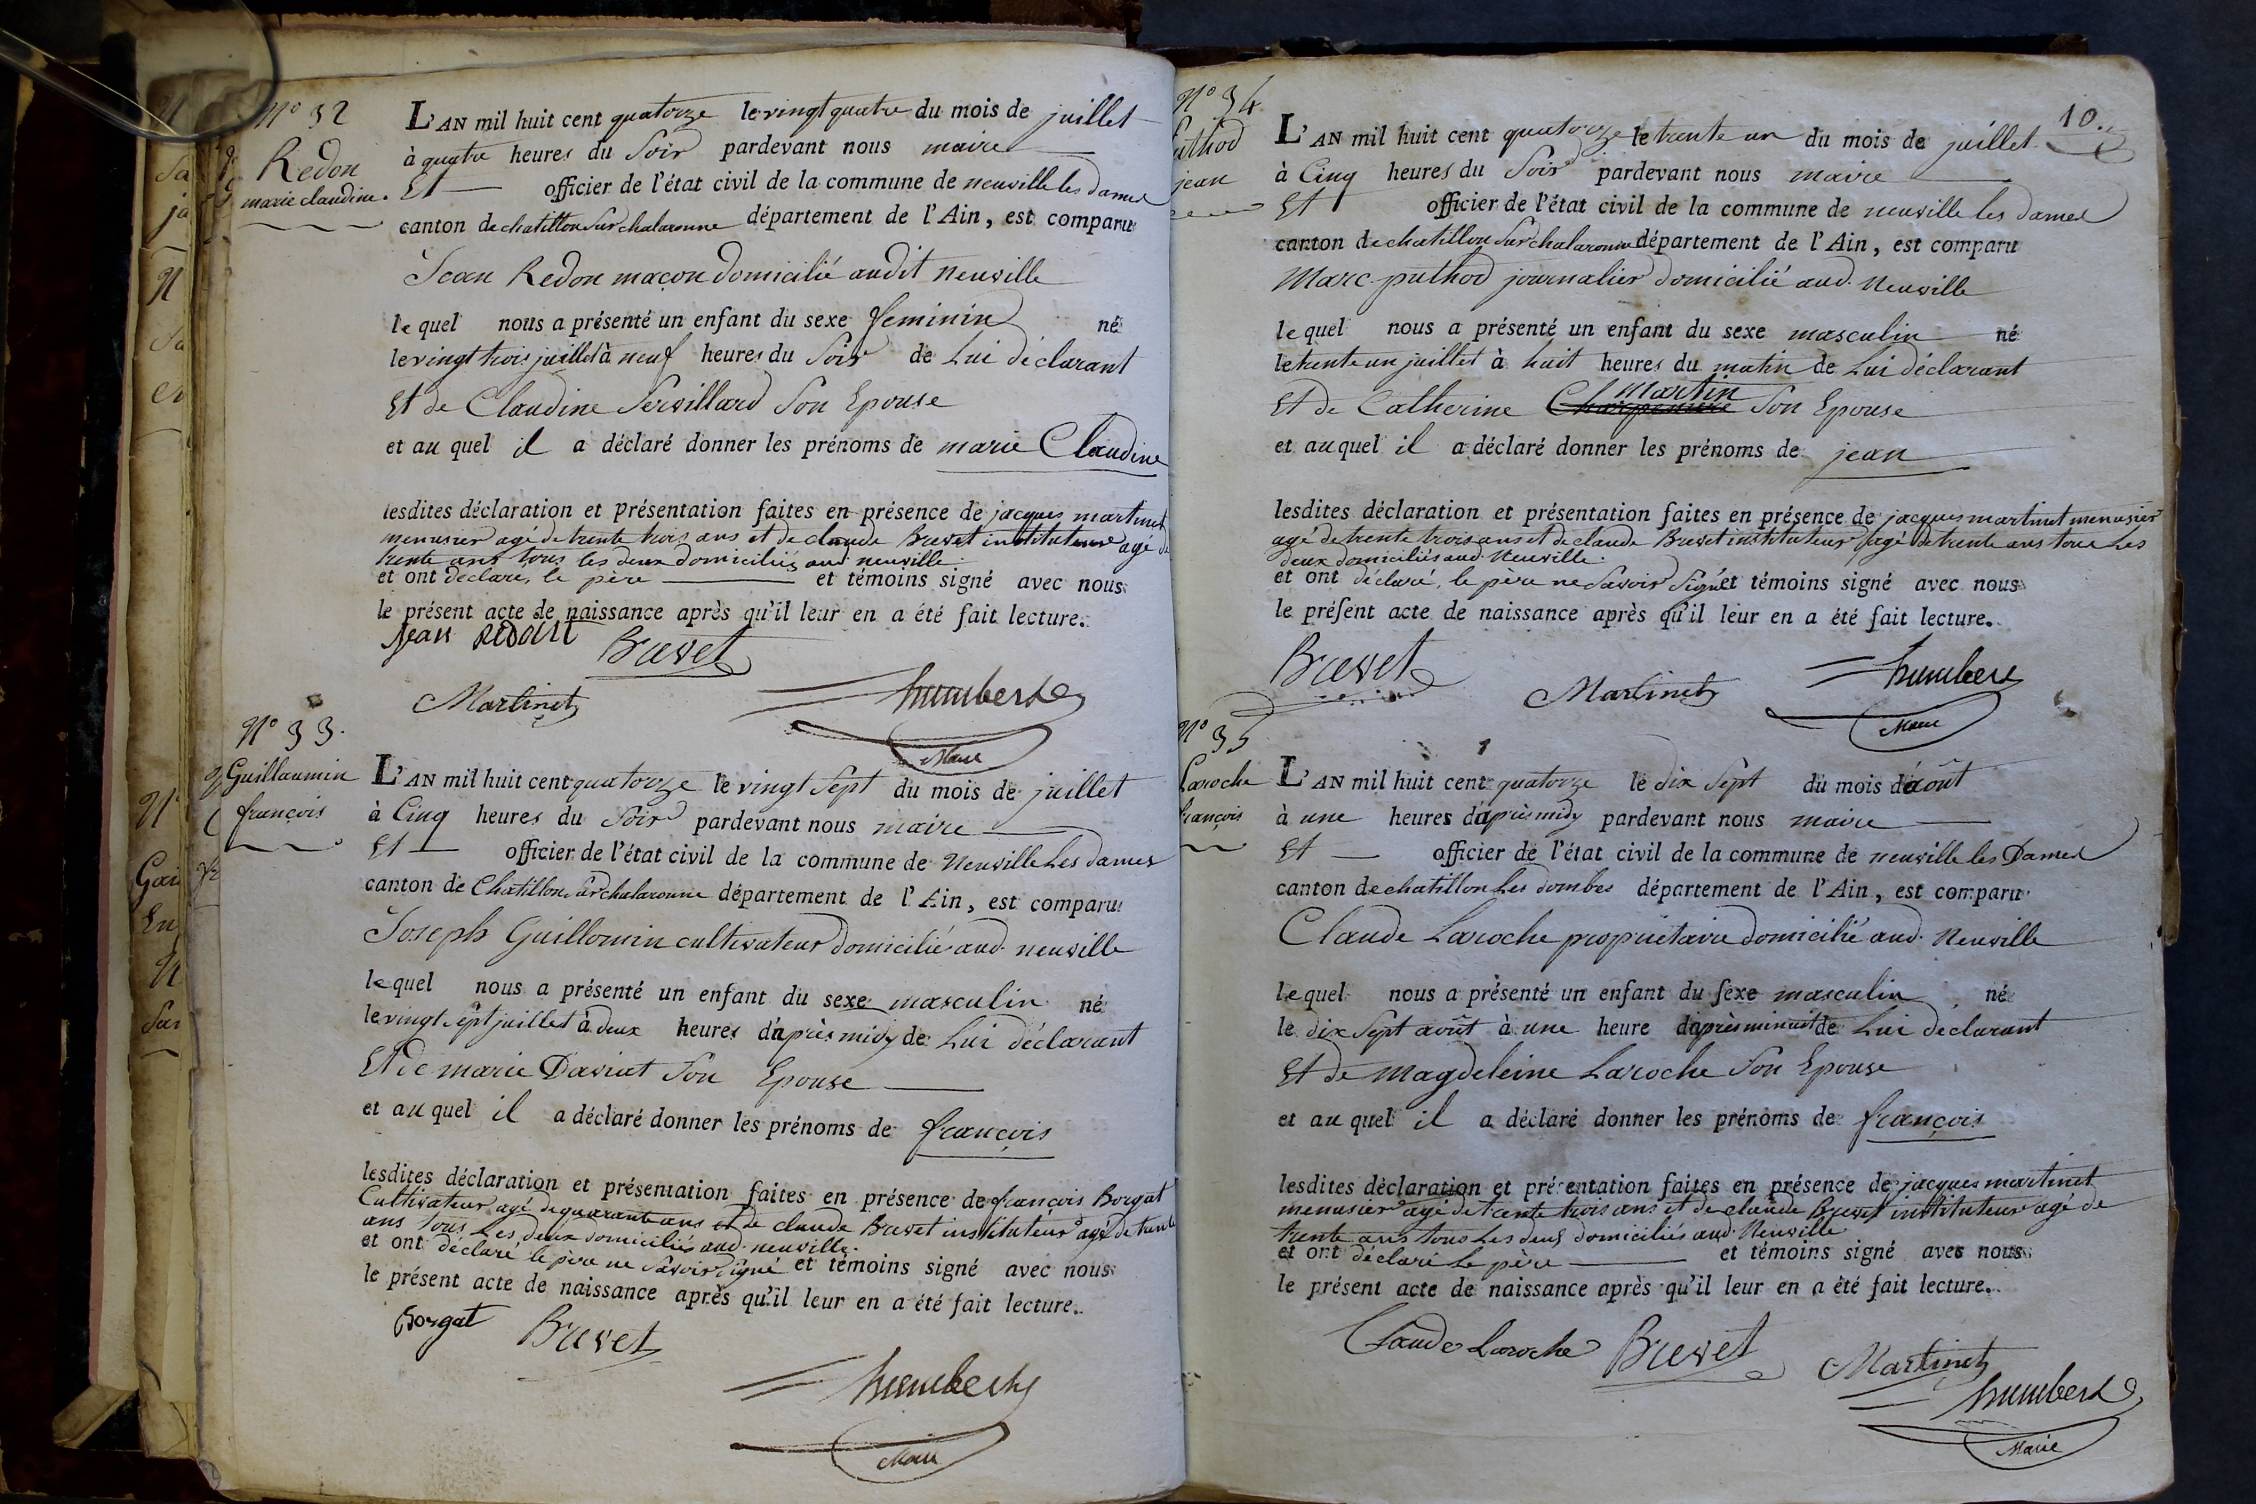 N° 32
Redon
marie claudine.
L'AN mil huit cent quatorze le vingt quatre du mois de juillet
à quatre heures du Soir pardevant nous maire
Et officier de l'état civil de la commune de neuville les dames
canton de chatillon Sur chalaronne département de l'Ain, est comparu
Jean Redon maçon domicilié audit neuville
lequel nous a présenté un enfant du sexe feminin né
le vingt trois juillet à neuf heures du Soir de Lui déclarant
Et de Claudine Servillard Son Epouse
et au quel il a déclaré donner les prénoms de marie Claudine
lesdites déclaration et présentation faites en présence de jacques martinet
menusier agé de trente trois ans et de claude Brevet instituteur agé de
trente ans tous les deux domiciliés aud neuville
et ont déclaré, le père et témoins signé avec nous
le présent acte de naissance après qu'il leur en a été fait lecture.
Jean Redont Brevet
Martinet humbert
Maire
N° 33.
Guillaumin
françois
L'AN mil huit cent quatorze le vingt Sept du mois de juillet
à Cinq heures du Soir pardevant nous maire
Et officier de l'état civil de la commune de Neuville Les dames
canton de Chatillon Sur chalaronne département de l'Ain, est comparu
Joseph Guillomin cultivateur domicilié aud. neuville
lequel nous a présenté un enfant du sexe masculin né
le vingt Sept juillet à deux heures d'après midy de Lui déclarant
Et de marie Daviat Son Epouse
et au quel il a déclaré donner les prénoms de françois
lesdites déclaration et présentation faites en présence de françois Borgat
Cultivateur agé de quarante ans et de claude Brevet instituteur agé de trente
ans tous Les deux domiciliés aud. neuville.
et ont déclaré le père ne Savoir Signé et témoins signé avec nous
le présent acte de naissance après qu'il leur en a été fait lecture.
Borgat Brevet
humbert
Maire
10.
N° 34
Puthod
jean
L'AN mil huit cent quatorze le trente un du mois de juillet
à Cinq heures du Soir pardevant nous maire
Et officier de l'état civil de la commune de neuville les dames
canton de chatillon Sur chalaronne département de l'Ain, est comparu
Marc puthod journalier domicilié aud. Neuville
lequel nous a présenté un enfant du sexe masculin né
le trente un juillet à huit heures du matin de Lui déclarant
Et de Catherine Martin Son Epouse
et au quel il a déclaré donner les prénoms de jean
lesdites déclaration et présentation faites en présence de jacques martinet menusier
agé de trente trois ans et de claude Brevet instituteur agé de trente ans tous Les
deux domiciliés aud. Neuville.
et ont déclaré, le père ne Savoir Signé et témoins signé avec nous
le préſent acte de naissance après qu'il leur en a été fait lecture.
Brevet Martinet humbert
Maire
N° 35
Laroche
françois
L'AN mil huit cent quatorze le dix Sept du mois d'août
à une heures d'après midy pardevant nous maire
Et officier de l'état civil de la commune de neuville les Dames
canton de chatillon Les dombes département de l'Ain, est comparu
Claude Laroche propriétaire domicilié aud. Neuville
lequel nous a présenté un enfant du ſexe masculin né
le dix Sept août à une heure d'après minuit de Lui déclarant
Et de Magdeleine Laroche Son Epouse
et au quel il a déclaré donner les prénoms de françois
lesdites déclaration et présentation faites en présence de jacques martinet
menusier agé de trente trois ans et de claude Brevet instituteur agé de
trente ans tous Les deux domiciliés aud. Neuville
et ont déclaré Le père et témoins signé avec nous
le présent acte de naissance après qu'il leur en a été fait lecture.
Claude Laroche Brevet Martinet
humbert
Maire